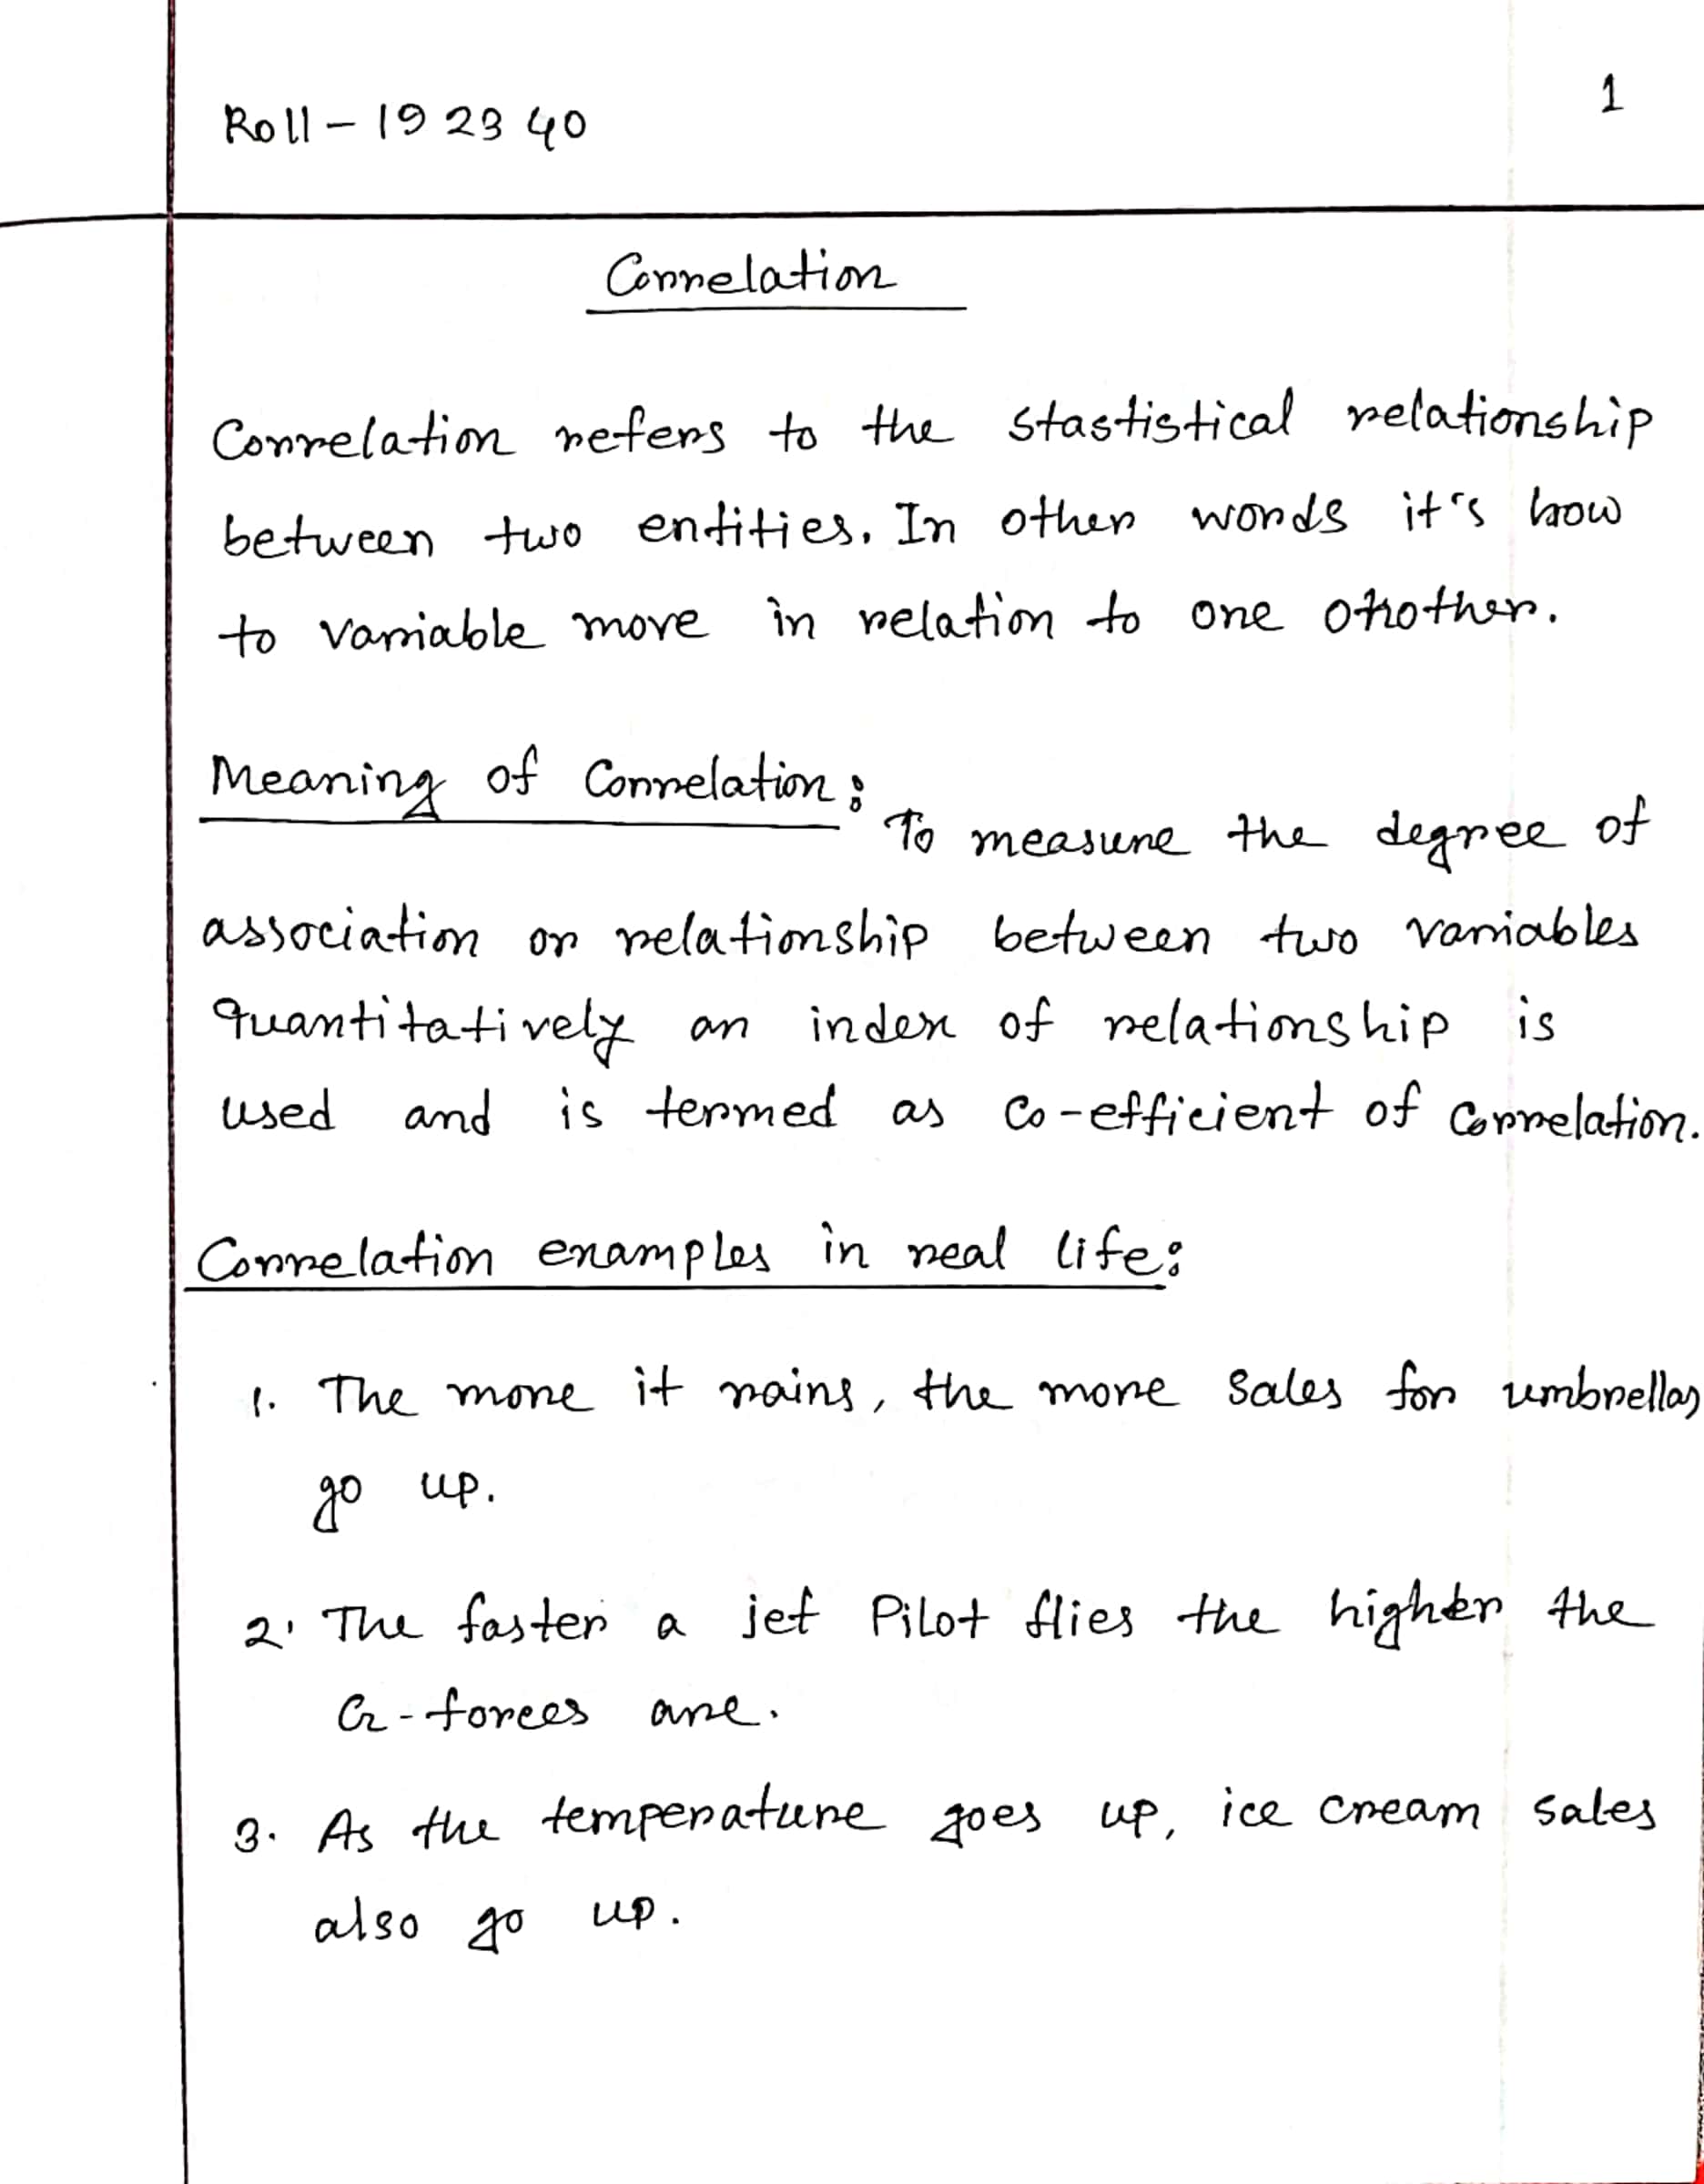 Roll - 192340
1
Correlation
Correlation refers to the stastistical relationship
between two entities. In other words it's how
to variable more in relation to one
Meaning of Correlation:
To measure the degree of
association or relationship between two variables
quantitatively an index of relationship is
used and is termed as co-efficient of correlation.
Correlation examples in real life:
1. The more it rains, the more sales for umbrellas
go up.
2. The faster a jet Pilot flies the higher the
G-forces are.
3. As the temperature goes up, ice cream sales
also go up.